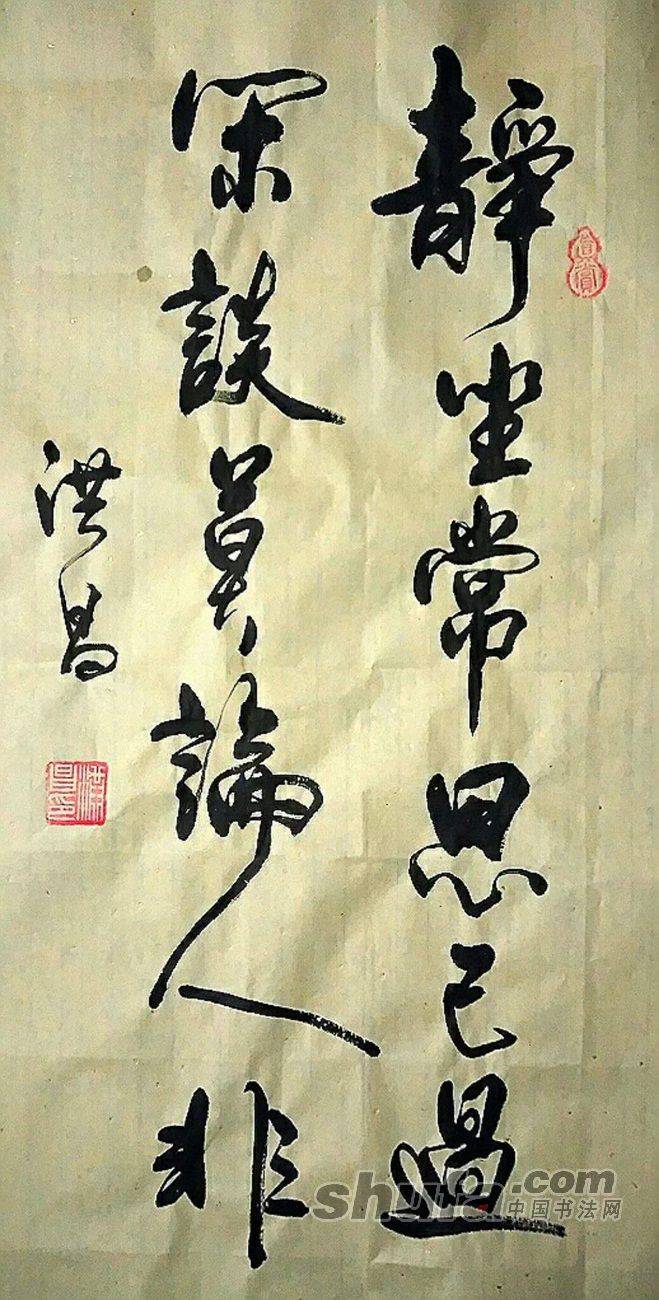 靜坐常思己過
閑談莫論人非
洪昌
shufa.com
中国书法网